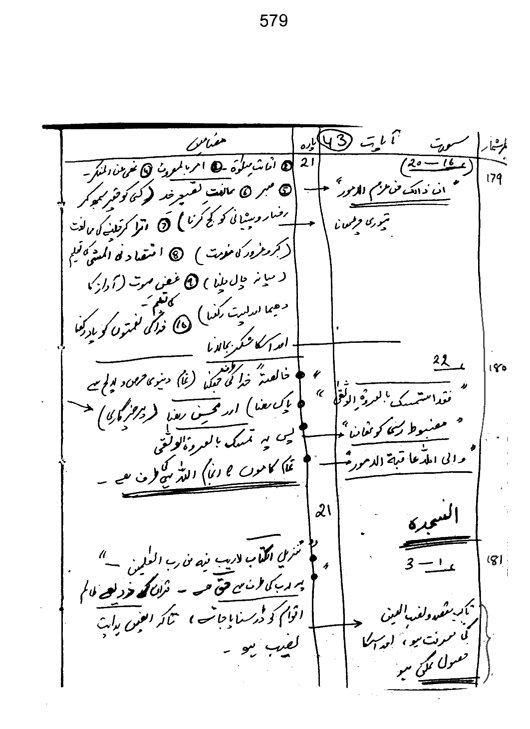 579
نمبر شمار سورت آیات 43 پارہ مضامین
179 (20 – 16) 21 اقامت صلوٰۃ – امر بالمعروف نہی عن المنکر –
"ان ذالک من عزم الامور" صبر مخالفت (کسی کو حقیر سمجھ کر
تیوری چڑھانا رخسار و پیشانی کو کج کرنا) ⑦ اترا کر چلنے کی مخالفت
(کبر و غرور کی مذمت) ⑧ اقتصاد فی المشی کی تعلیم
(میانہ چال چلنا) ⑨ غض صوت (آواز کا
کی تعلیم –
دھیما اور پست رکھنا) ⑩ خدا کی نعمتوں کو یاد رکھنا
اور اسکا شکر بجا لانا
180 22 خالصۃً خدا کی طرف جھکنا (تمام دنیوی حرص و
"فقد استمسک بالعروۃ الوثقیٰ" پاک رہنا) اور محسن رہنا (پرہیزگاری)
"مضبوط رسی کو تھامنا" پس یہ تمسک بالعروۃ الوثقیٰ
"والی اللہ عاقبۃ الامور" تمام کاموں کا انجام اللہ ہی کی طرف ہے –
السجدہ 21
181 3 – 1 "تنزیل الکتاب لاریب فیہ من رب العٰلمین –"
یہ رب کی طرف سے حق ہے – قرآن کے ذریعے ظالم
تاکہ مقصد و نصب العین اقوام کو ڈر سنایا جائے، تاکہ انھیں ہدایت
کی معرفت ہو، اور اسکا نصیب ہو –
حصول ممکن ہو